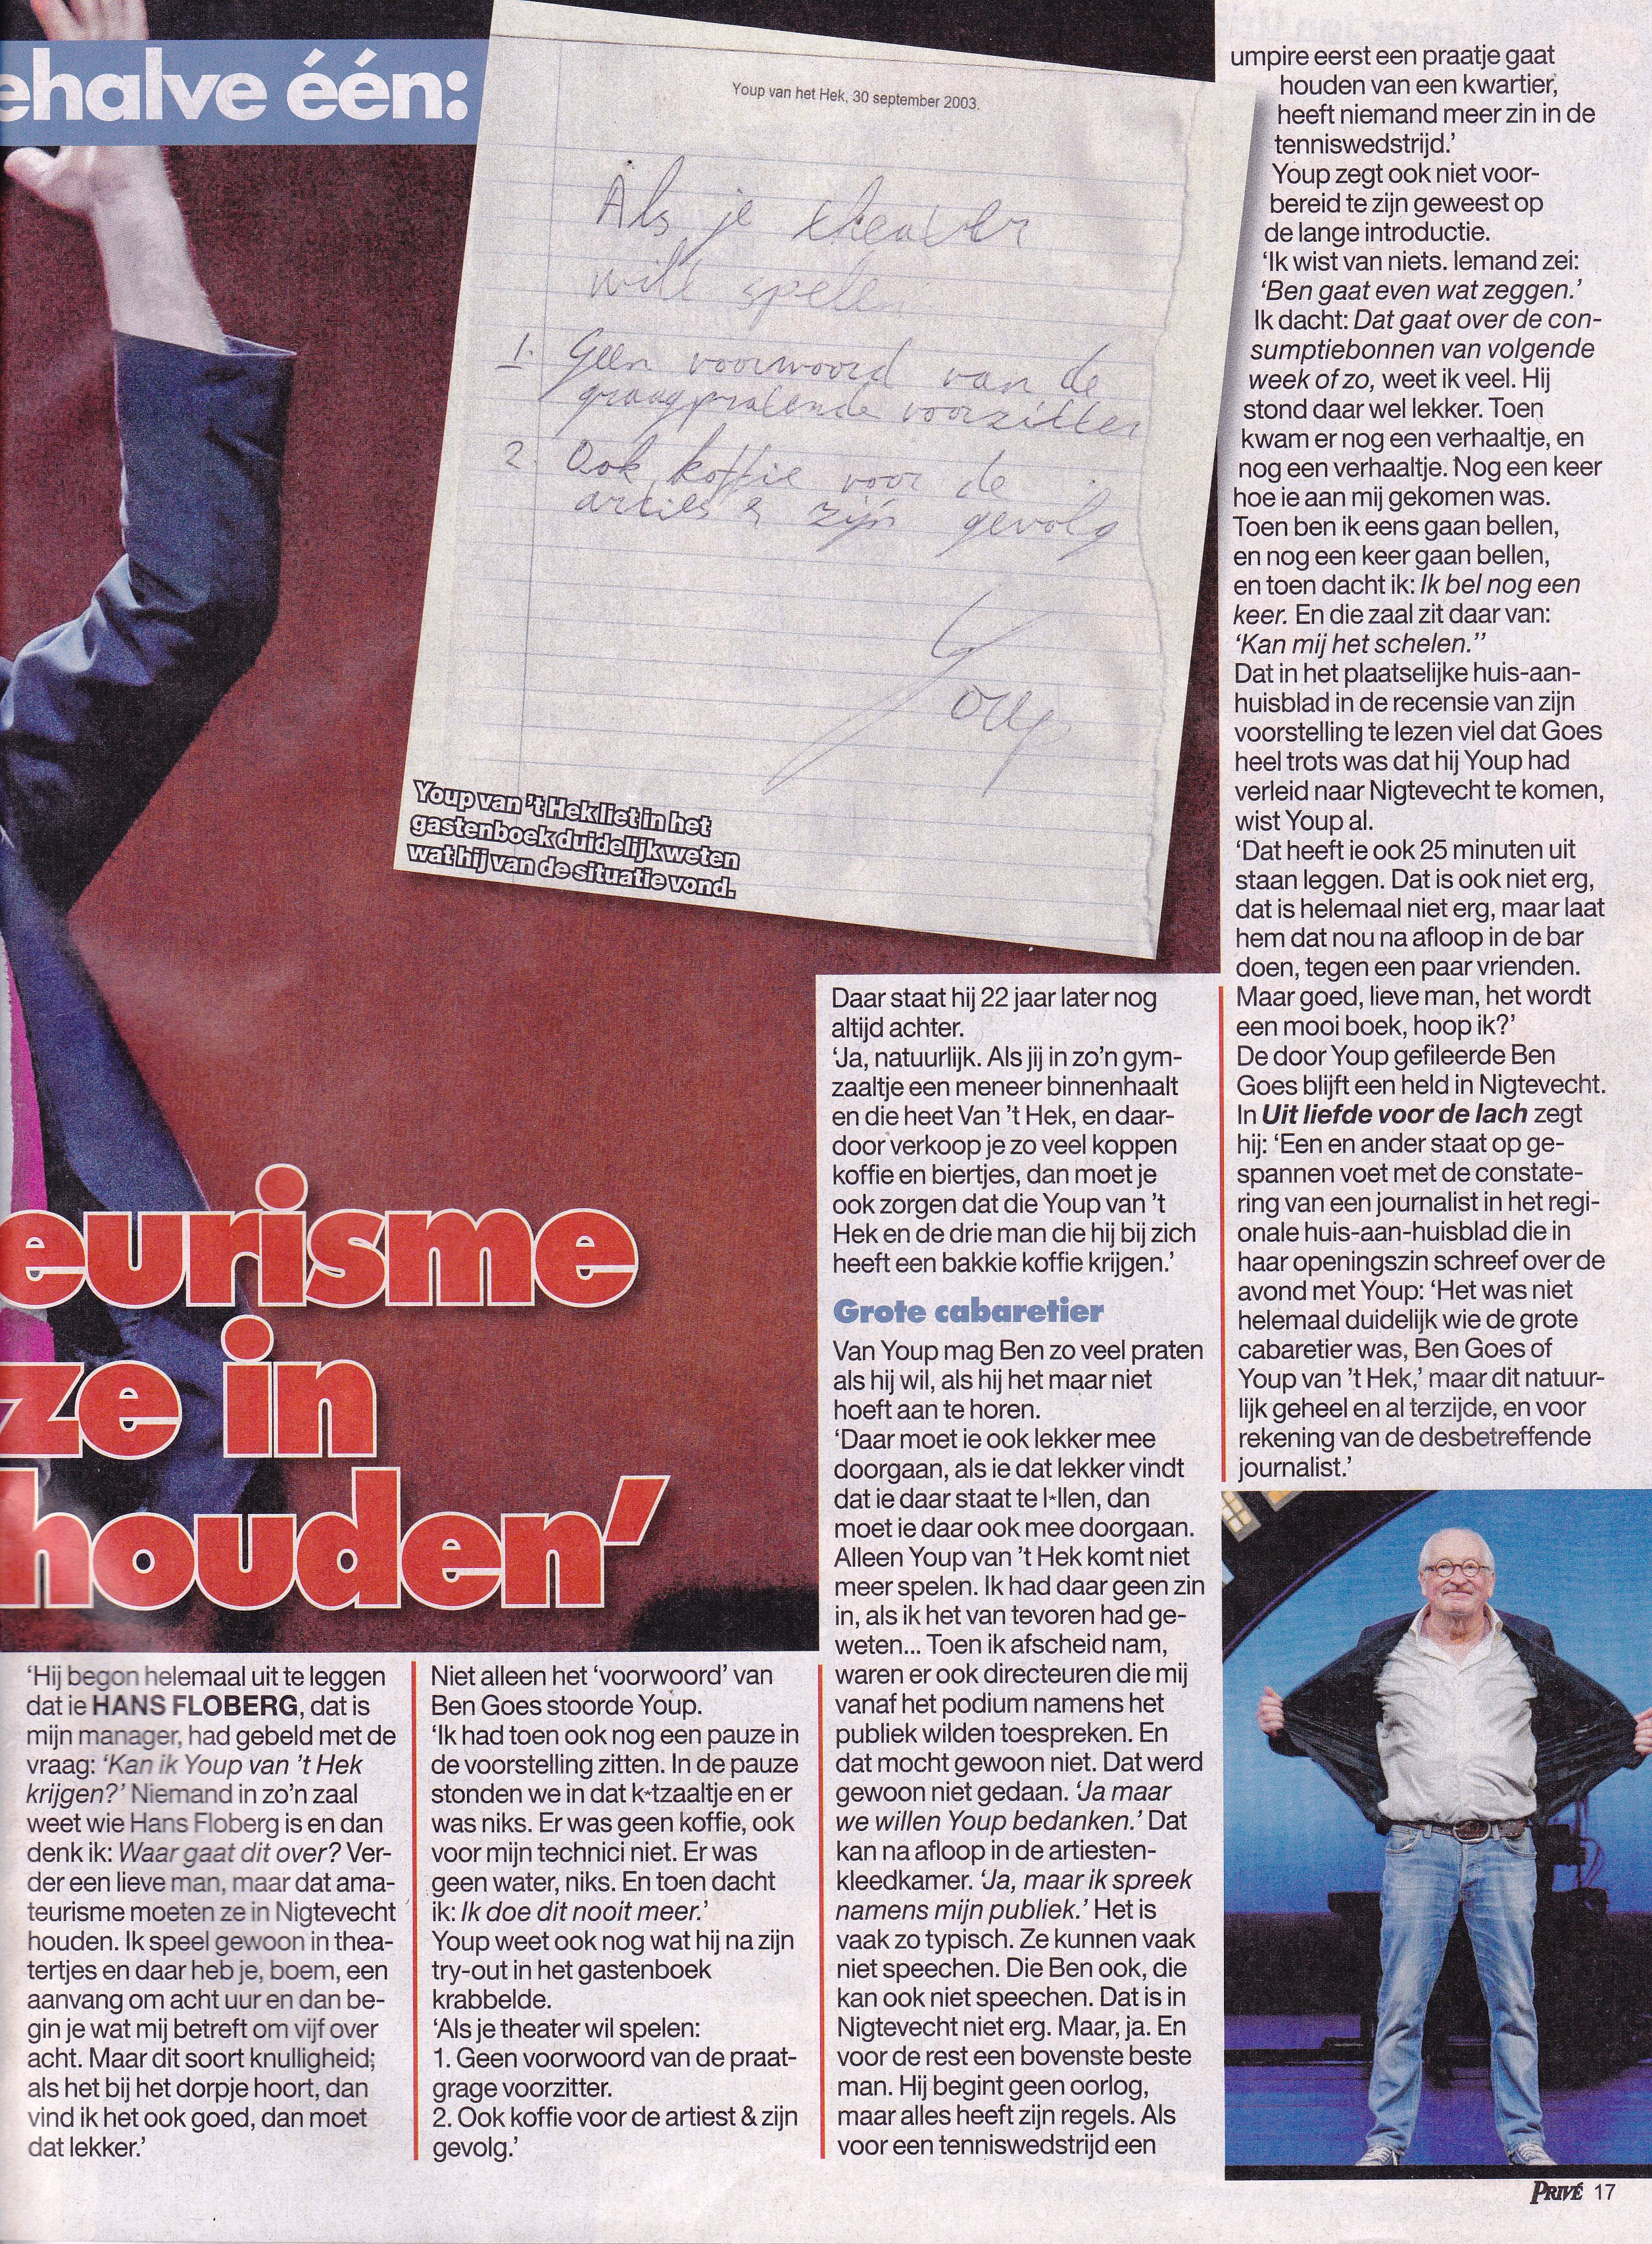 ehalve één:
Youp van het Hek, 30 september 2003.
Als je theater
wilt spelen
1. Geen voorwoord van de
graagpratende voorzitter
2. Ook koffie voor de
artiest & zijn gevolg
Youp
Youp van 't Hek liet in het
gastenboek duidelijk weten
wat hij van de situatie vond.
eurisme
ze in
houden'
'Hij begon helemaal uit te leggen
dat ie HANS FLOBERG, dat is
mijn manager, had gebeld met de
vraag: 'Kan ik Youp van 't Hek
krijgen?' Niemand in zo'n zaal
weet wie Hans Floberg is en dan
denk ik: Waar gaat dit over? Ver-
der een lieve man, maar dat ama-
teurisme moeten ze in Nigtevecht
houden. Ik speel gewoon in thea-
tertjes en daar heb je, boem, een
aanvang om acht uur en dan be-
gin je wat mij betreft om vijf over
acht. Maar dit soort knulligheid;
als het bij het dorpje hoort, dan
vind ik het ook goed, dan moet
dat lekker.'
Niet alleen het 'voorwoord' van
Ben Goes stoorde Youp.
'Ik had toen ook nog een pauze in
de voorstelling zitten. In de pauze
stonden we in dat k*tzaaltje en er
was niks. Er was geen koffie, ook
voor mijn technici niet. Er was
geen water, niks. En toen dacht
ik: Ik doe dit nooit meer.'
Youp weet ook nog wat hij na zijn
try-out in het gastenboek
krabbelde.
'Als je theater wil spelen:
1. Geen voorwoord van de praat-
grage voorzitter.
2. Ook koffie voor de artiest & zijn
gevolg.'
Daar staat hij 22 jaar later nog
altijd achter.
'Ja, natuurlijk. Als jij in zo'n gym-
zaaltje een meneer binnenhaalt
en die heet Van 't Hek, en daar-
door verkoop je zo veel koppen
koffie en biertjes, dan moet je
ook zorgen dat die Youp van 't
Hek en de drie man die hij bij zich
heeft een bakkie koffie krijgen.'
Grote cabaretier
Van Youp mag Ben zo veel praten
als hij wil, als hij het maar niet
hoeft aan te horen.
'Daar moet ie ook lekker mee
doorgaan, als ie dat lekker vindt
dat ie daar staat te l*llen, dan
moet ie daar ook mee doorgaan.
Alleen Youp van 't Hek komt niet
meer spelen. Ik had daar geen zin
in, als ik het van tevoren had ge-
weten... Toen ik afscheid nam,
waren er ook directeuren die mij
vanaf het podium namens het
publiek wilden toespreken. En
dat mocht gewoon niet. Dat werd
gewoon niet gedaan. 'Ja maar
we willen Youp bedanken.' Dat
kan na afloop in de artiesten-
kleedkamer. 'Ja, maar ik spreek
namens mijn publiek.' Het is
vaak zo typisch. Ze kunnen vaak
niet speechen. Die Ben ook, die
kan ook niet speechen. Dat is in
Nigtevecht niet erg. Maar, ja. En
voor de rest een bovenste beste
man. Hij begint geen oorlog,
maar alles heeft zijn regels. Als
voor een tenniswedstrijd een
umpire eerst een praatje gaat
houden van een kwartier,
heeft niemand meer zin in de
tenniswedstrijd.'
Youp zegt ook niet voor-
bereid te zijn geweest op
de lange introductie.
'Ik wist van niets. Iemand zei:
'Ben gaat even wat zeggen.'
Ik dacht: Dat gaat over de con-
sumptiebonnen van volgende
week of zo, weet ik veel. Hij
stond daar wel lekker. Toen
kwam er nog een verhaaltje, en
nog een verhaaltje. Nog een keer
hoe ie aan mij gekomen was.
Toen ben ik eens gaan bellen,
en nog een keer gaan bellen,
en toen dacht ik: Ik bel nog een
keer. En die zaal zit daar van:
'Kan mij het schelen.''
Dat in het plaatselijke huis-aan-
huisblad in de recensie van zijn
voorstelling te lezen viel dat Goes
heel trots was dat hij Youp had
verleid naar Nigtevecht te komen,
wist Youp al.
'Dat heeft ie ook 25 minuten uit
staan leggen. Dat is ook niet erg,
dat is helemaal niet erg, maar laat
hem dat nou na afloop in de bar
doen, tegen een paar vrienden.
Maar goed, lieve man, het wordt
een mooi boek, hoop ik?'
De door Youp gefileerde Ben
Goes blijft een held in Nigtevecht.
In Uit liefde voor de lach zegt
hij: 'Een en ander staat op ge-
spannen voet met de constate-
ring van een journalist in het regi-
onale huis-aan-huisblad die in
haar openingszin schreef over de
avond met Youp: 'Het was niet
helemaal duidelijk wie de grote
cabaretier was, Ben Goes of
Youp van 't Hek,' maar dit natuur-
lijk geheel en al terzijde, en voor
rekening van de desbetreffende
journalist.'
PRIVÉ 17